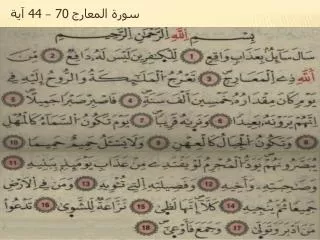 سورة المعارج 70 – 44 آية
بِسْمِ اللَّهِ الرَّحْمَٰنِ الرَّحِيمِ
سَأَلَ سَائِلٌ بِعَذَابٍ وَاقِعٍ 1 لِّلْكَافِرِينَ لَيْسَ لَهُ دَافِعٌ 2 مِّنَ
اللَّهِ ذِي الْمَعَارِجِ 3 تَعْرُجُ الْمَلَائِكَةُ وَالرُّوحُ إِلَيْهِ فِي
يَوْمٍ كَانَ مِقْدَارُهُ خَمْسِينَ أَلْفَ سَنَةٍ 4 فَاصْبِرْ صَبْرًا جَمِيلًا 5
إِنَّهُمْ يَرَوْنَهُ بَعِيدًا 6 وَنَرَاهُ قَرِيبًا 7 يَوْمَ تَكُونُ السَّمَاءُ كَالْمُهْلِ
8 وَتَكُونُ الْجِبَالُ كَالْعِهْنِ 9 وَلَا يَسْأَلُ حَمِيمٌ حَمِيمًا 10
يُبَصَّرُونَهُمْ يَوَدُّ الْمُجْرِمُ لَوْ يَفْتَدِي مِنْ عَذَابِ يَوْمِئِذٍ بِبَنِيهِ 11
وَصَاحِبَتِهِ وَأَخِيهِ 12 وَفَصِيلَتِهِ الَّتِي تُؤْوِيهِ 13 وَمَن فِي الْأَرْضِ
جَمِيعًا ثُمَّ يُنجِيهِ 14 كَلَّا إِنَّهَا لَظَىٰ 15 نَزَّاعَةً لِّلشَّوَىٰ 16 تَدْعُو
مَنْ أَدْبَرَ وَتَوَلَّىٰ 17 وَجَمَعَ فَأَوْعَىٰ 18